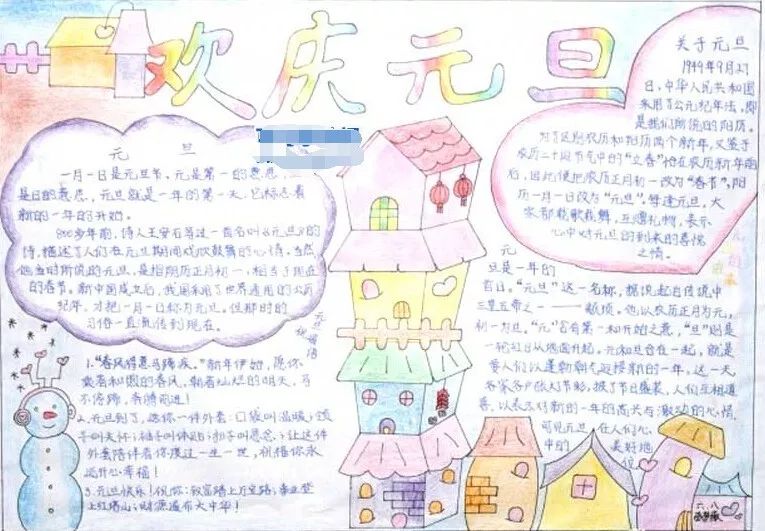 欢庆元旦
元 旦
一月一日是元旦节，元是第一的意思，
是日的意思，元旦就是一年的第一天，它标志着
新的一年的开始。
800多年前，诗人王安石写过一首名叫《元旦》的
诗，描述了人们在元旦期间戏欣鼓舞的心情。当然
他当时所说的元旦，是指阴历正月初一，相当于现在
的春节。新中国成立后，我国采用了世界通用的公历
纪年，才把一月一日称为元旦。但那时的
习俗一直流传到现在。
关于元旦
1949年9月27
日，中华人民共和国
采用了公元纪年法，即
是我们所说的阳历。
为了区别农历和阳历两个新年，又鉴于
农历二十四节气中的“立春”恰在农历新年前
后，因此便把农历正月初一改为“春节”，阳
历一月一日改为“元旦”。每逢元旦，大
家都载歌载舞，互赠礼物，表示
心中对元旦的到来的喜悦
之情。
元旦祝福语
1."春风得意马蹄疾。"新年伊始，愿你
乘着和煦的春风，朝着灿烂的明天，马
不停蹄，奔腾前进！
2.元旦到了，送你一件外套：口袋叫温暖；领
子叫关怀；袖子叫体贴；扣子叫思念；让这件
外套陪伴着你度过一生一世，祝福你永
远开心幸福！
3.元旦快乐！祝你：致富踏上万宝路；事业登
上红塔山；财源遍布大中华！
元
旦是一年的
首日。“元旦”这一名称，据说起自传说中
三皇五帝之一——颛顼。他以农历正月为元，
初一为旦。“元”含有第一和开始之意，“旦”则是
一轮红日从地面升起。元和旦合在一起，就是
要人们以蓬勃朝气迎接新的一年。这一天
各家各户张灯节彩，披了节日盛装，人们互相道
喜，以表示对新的一年的高兴与激动的心情。
可见元旦在人们心
中的
美好地
位
六．八